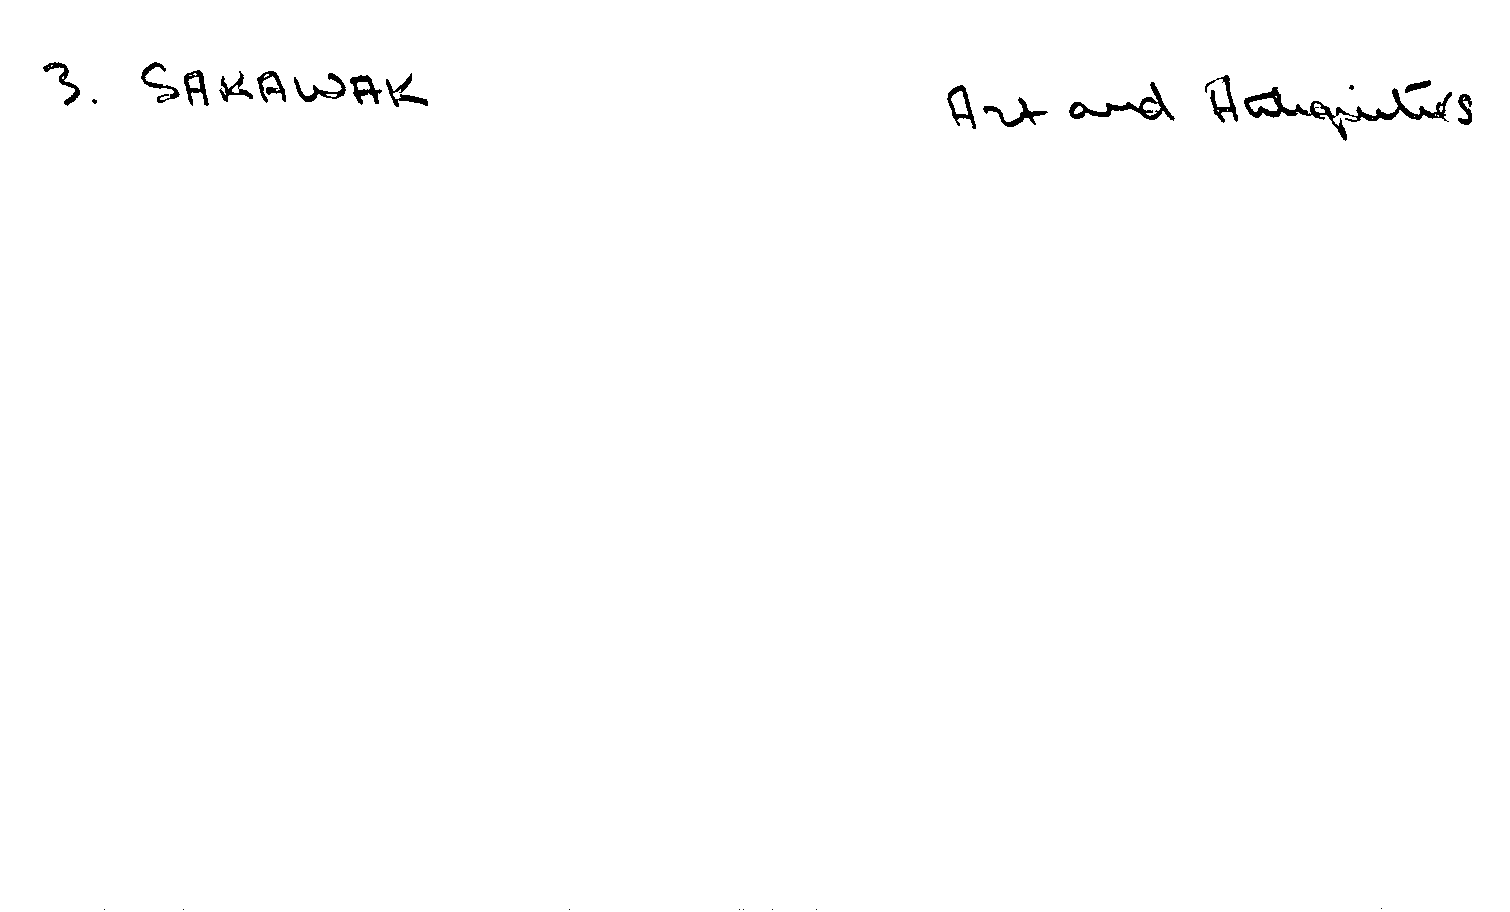 3. SARAWAK
Art and Antiquities